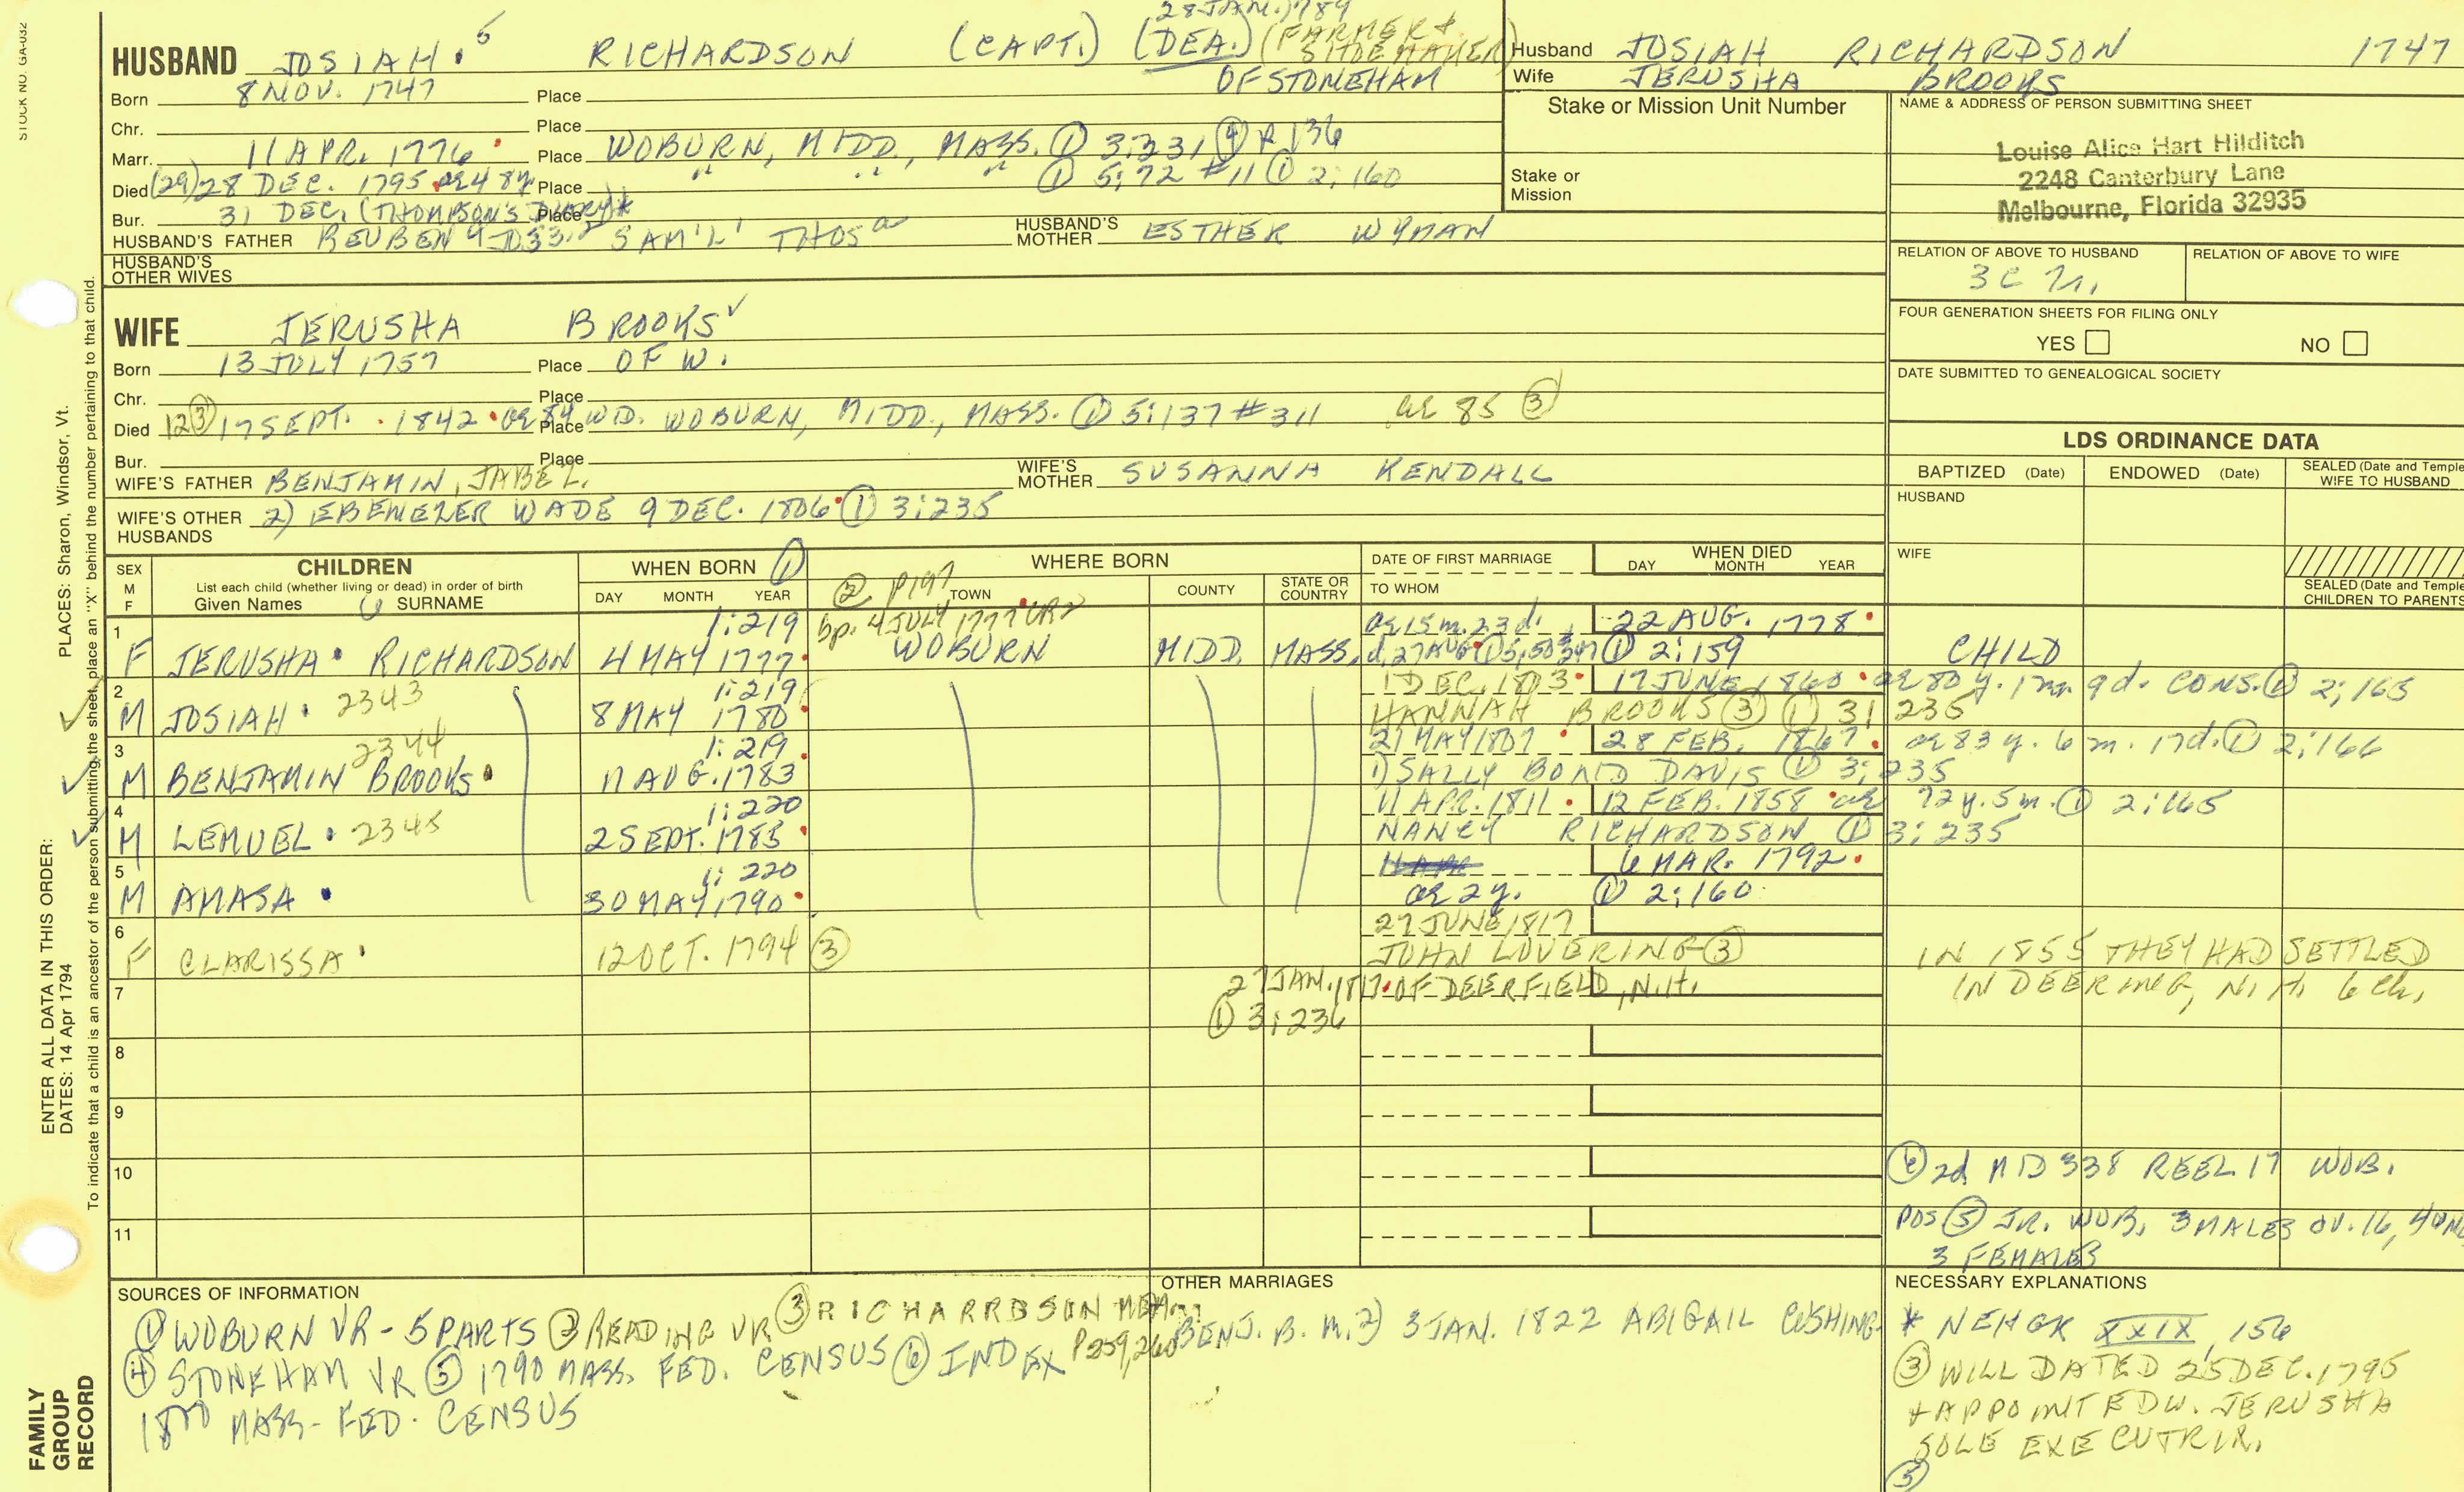 STOCK NO. GA-032
28 JAN. 1789
HUSBAND JOSIAH. 6 RICHARDSON (CAPT.) (DEA.) (FARMER &
SHOEMAKER)
Born 8 NOV. 1747 Place OF STONEHAM
Chr. Place
Marr. 11 APR. 1776 Place WOBURN, MIDD., MASS. ① 3:231 ④ P. 136
Died (29) 28 DEC. 1795 ae 48y Place " " " ① 5:72 #11 ① 2:160
Bur. 31 DEC. (THOMPSON'S DIARY)* Place
HUSBAND'S FATHER REUBEN 4 JOS 3 SAM'L THOS HUSBAND'S MOTHER ESTHER WYMAN
HUSBAND'S OTHER WIVES
Husband JOSIAH RICHARDSON 1747
Wife JERUSHA BROOKS
Stake or Mission Unit Number
Stake or
Mission
NAME & ADDRESS OF PERSON SUBMITTING SHEET
Louise Alice Hart Hilditch
2248 Canterbury Lane
Melbourne, Florida 32935
RELATION OF ABOVE TO HUSBAND RELATION OF ABOVE TO WIFE
FOUR GENERATION SHEETS FOR FILING ONLY
YES NO
DATE SUBMITTED TO GENEALOGICAL SOCIETY
WIFE JERUSHA BROOKS ✓
Born 13 JULY 1757 Place OF W.
Chr. Place
Died 12 ③ 17 SEPT. 1842 ae 84 Place WD. WOBURN, MIDD., MASS. ① 5:137 #311 ae 85 ③
Bur. Place
WIFE'S FATHER BENJAMIN, JABEZ. WIFE'S MOTHER SUSANNA KENDALL
WIFE'S OTHER HUSBANDS 2) EBENEZER WADE 9 DEC. 1806 ① 3:235
LDS ORDINANCE DATA
BAPTIZED (Date) ENDOWED (Date) SEALED (Date and Temple) WIFE TO HUSBAND
HUSBAND
WIFE
SEALED (Date and Temple) CHILDREN TO PARENTS
SEX M F
CHILDREN
List each child (whether living or dead) in order of birth
Given Names SURNAME
WHEN BORN ①
DAY MONTH YEAR
② P197
WHERE BORN
TOWN COUNTY STATE OR COUNTRY
DATE OF FIRST MARRIAGE
TO WHOM
WHEN DIED
DAY MONTH YEAR
1 1:219 bp. 4 JULY 1777 CR2 ae 15 m. 23 d. 22 AUG. 1778
F JERUSHA RICHARDSON 4 MAY 1777 WOBURN MIDD. MASS. d. 27 AUG ① 2:159 CHILD
2 2343 1:219 1 DEC. 1803 17 JUNE 1860 ae 80 y. 1 m 9 d. CONS. ① 2:165
M JOSIAH 8 MAY 1780 HANNAH BROOKS ③ ① 3:235
3 2344 1:219 21 MAY 1807 28 FEB. 1867 ae 83 y. 6 m. 17 d. ① 2:166
M BENJAMIN BROOKS 11 AUG. 1783 1) SALLY BOND DAVIS ① 3:235
4 1:220 11 APR. 1811 12 FEB. 1858 ae 72 y. 5 m. ① 2:165
M LEMUEL 2345 2 SEPT. 1785 NANCY RICHARDSON ① 3:235
5 1:220 6 MAR. 1792
M AMASA 30 MAY 1790 ae 2 y. ① 2:160
6 27 JUNE 1817
F CLARISSA 12 OCT. 1794 ③ JOHN LOVERING ③ IN 1855 THEY HAD SETTLED
7 27 JAN. 1817 OF DEERFIELD, N.H. IN DEERING, N.H. 6 ch.
① 3:236
8
9
10 ⑥ 2d MID 338 REEL 17 WOB.
11 POS ⑤ JR. WOB. 3 MALES OV. 16,
3 FEMALES
SOURCES OF INFORMATION
① WOBURN VR - 5 PARTS ② READING VR ③ RICHARRDSON MEM
P259,260
④ STONEHAM VR ⑤ 1790 MASS. FED. CENSUS ⑥ INDEX
1800 MASS - FED. CENSUS
OTHER MARRIAGES
BENJ. B. M. 2) 3 JAN. 1822 ABIGAIL CUSHING
NECESSARY EXPLANATIONS
* NEHGR XXIX, 156
③ WILL DATED 25 DEC. 1795
+ APPOINTED W. JERUSHA
SOLE EXECUTRIX.
⑤
ENTER ALL DATA IN THIS ORDER:
DATES: 14 Apr 1794
PLACES: Sharon, Windsor, Vt.
To indicate that a child is an ancestor of the person submitting the sheet, place an "X" behind the number pertaining to that child.
FAMILY
GROUP
RECORD